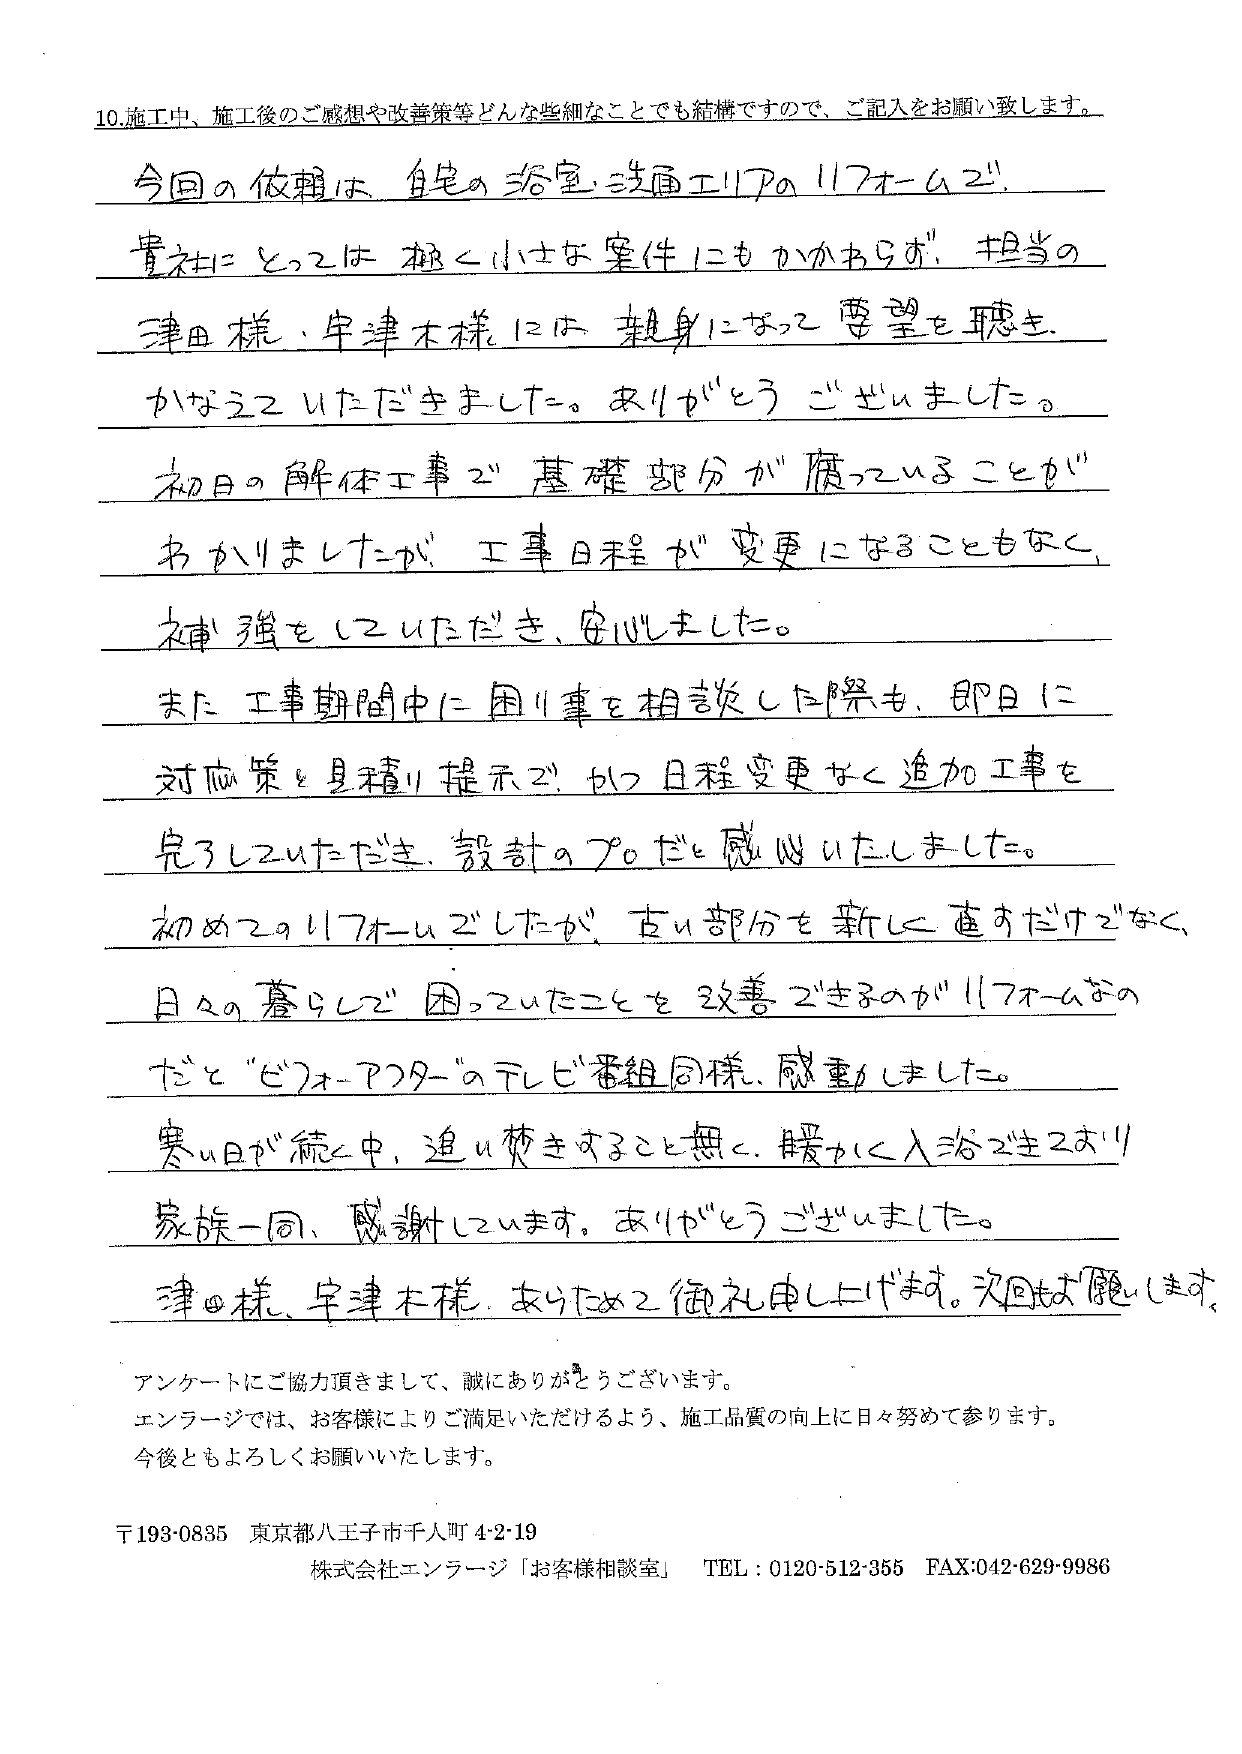 10.施工中、施工後のご感想や改善策等どんな些細なことでも結構ですので、ご記入をお願い致します。
今回の依頼は、自宅の浴室・洗面エリアのリフォームで、
貴社にとっては極く小さな案件にもかかわらず、担当の
津田様・宇津木様には親身になって要望を聴き、
かなえていただきました。ありがとうございました。
初日の解体工事で基礎部分が腐っていることが
わかりましたが、工事日程が変更になることもなく、
補強をしていただき、安心しました。
また工事期間中に困り事を相談した際も、即日に
対応策と見積り提示で、かつ日程変更なく追加工事を
完了していただき、設計のプロだと感心いたしました。
初めてのリフォームでしたが、古い部分を新しく直すだけでなく、
日々の暮らしで困っていたことを改善できるのがリフォームなの
だと“ビフォーアフター”のテレビ番組同様、感動しました。
寒い日が続く中、追い焚きすること無く、暖かく入浴できており
家族一同、感謝しています。ありがとうございました。
津田様、宇津木様、あらためて御礼申し上げます。次回もお願いします。
アンケートにご協力頂きまして、誠にありがとうございます。
エンラージでは、お客様によりご満足いただけるよう、施工品質の向上に日々努めて参ります。
今後ともよろしくお願いいたします。
〒193-0835 東京都八王子市千人町 4-2-19
株式会社エンラージ「お客様相談室」 TEL：0120-512-355 FAX:042-629-9986